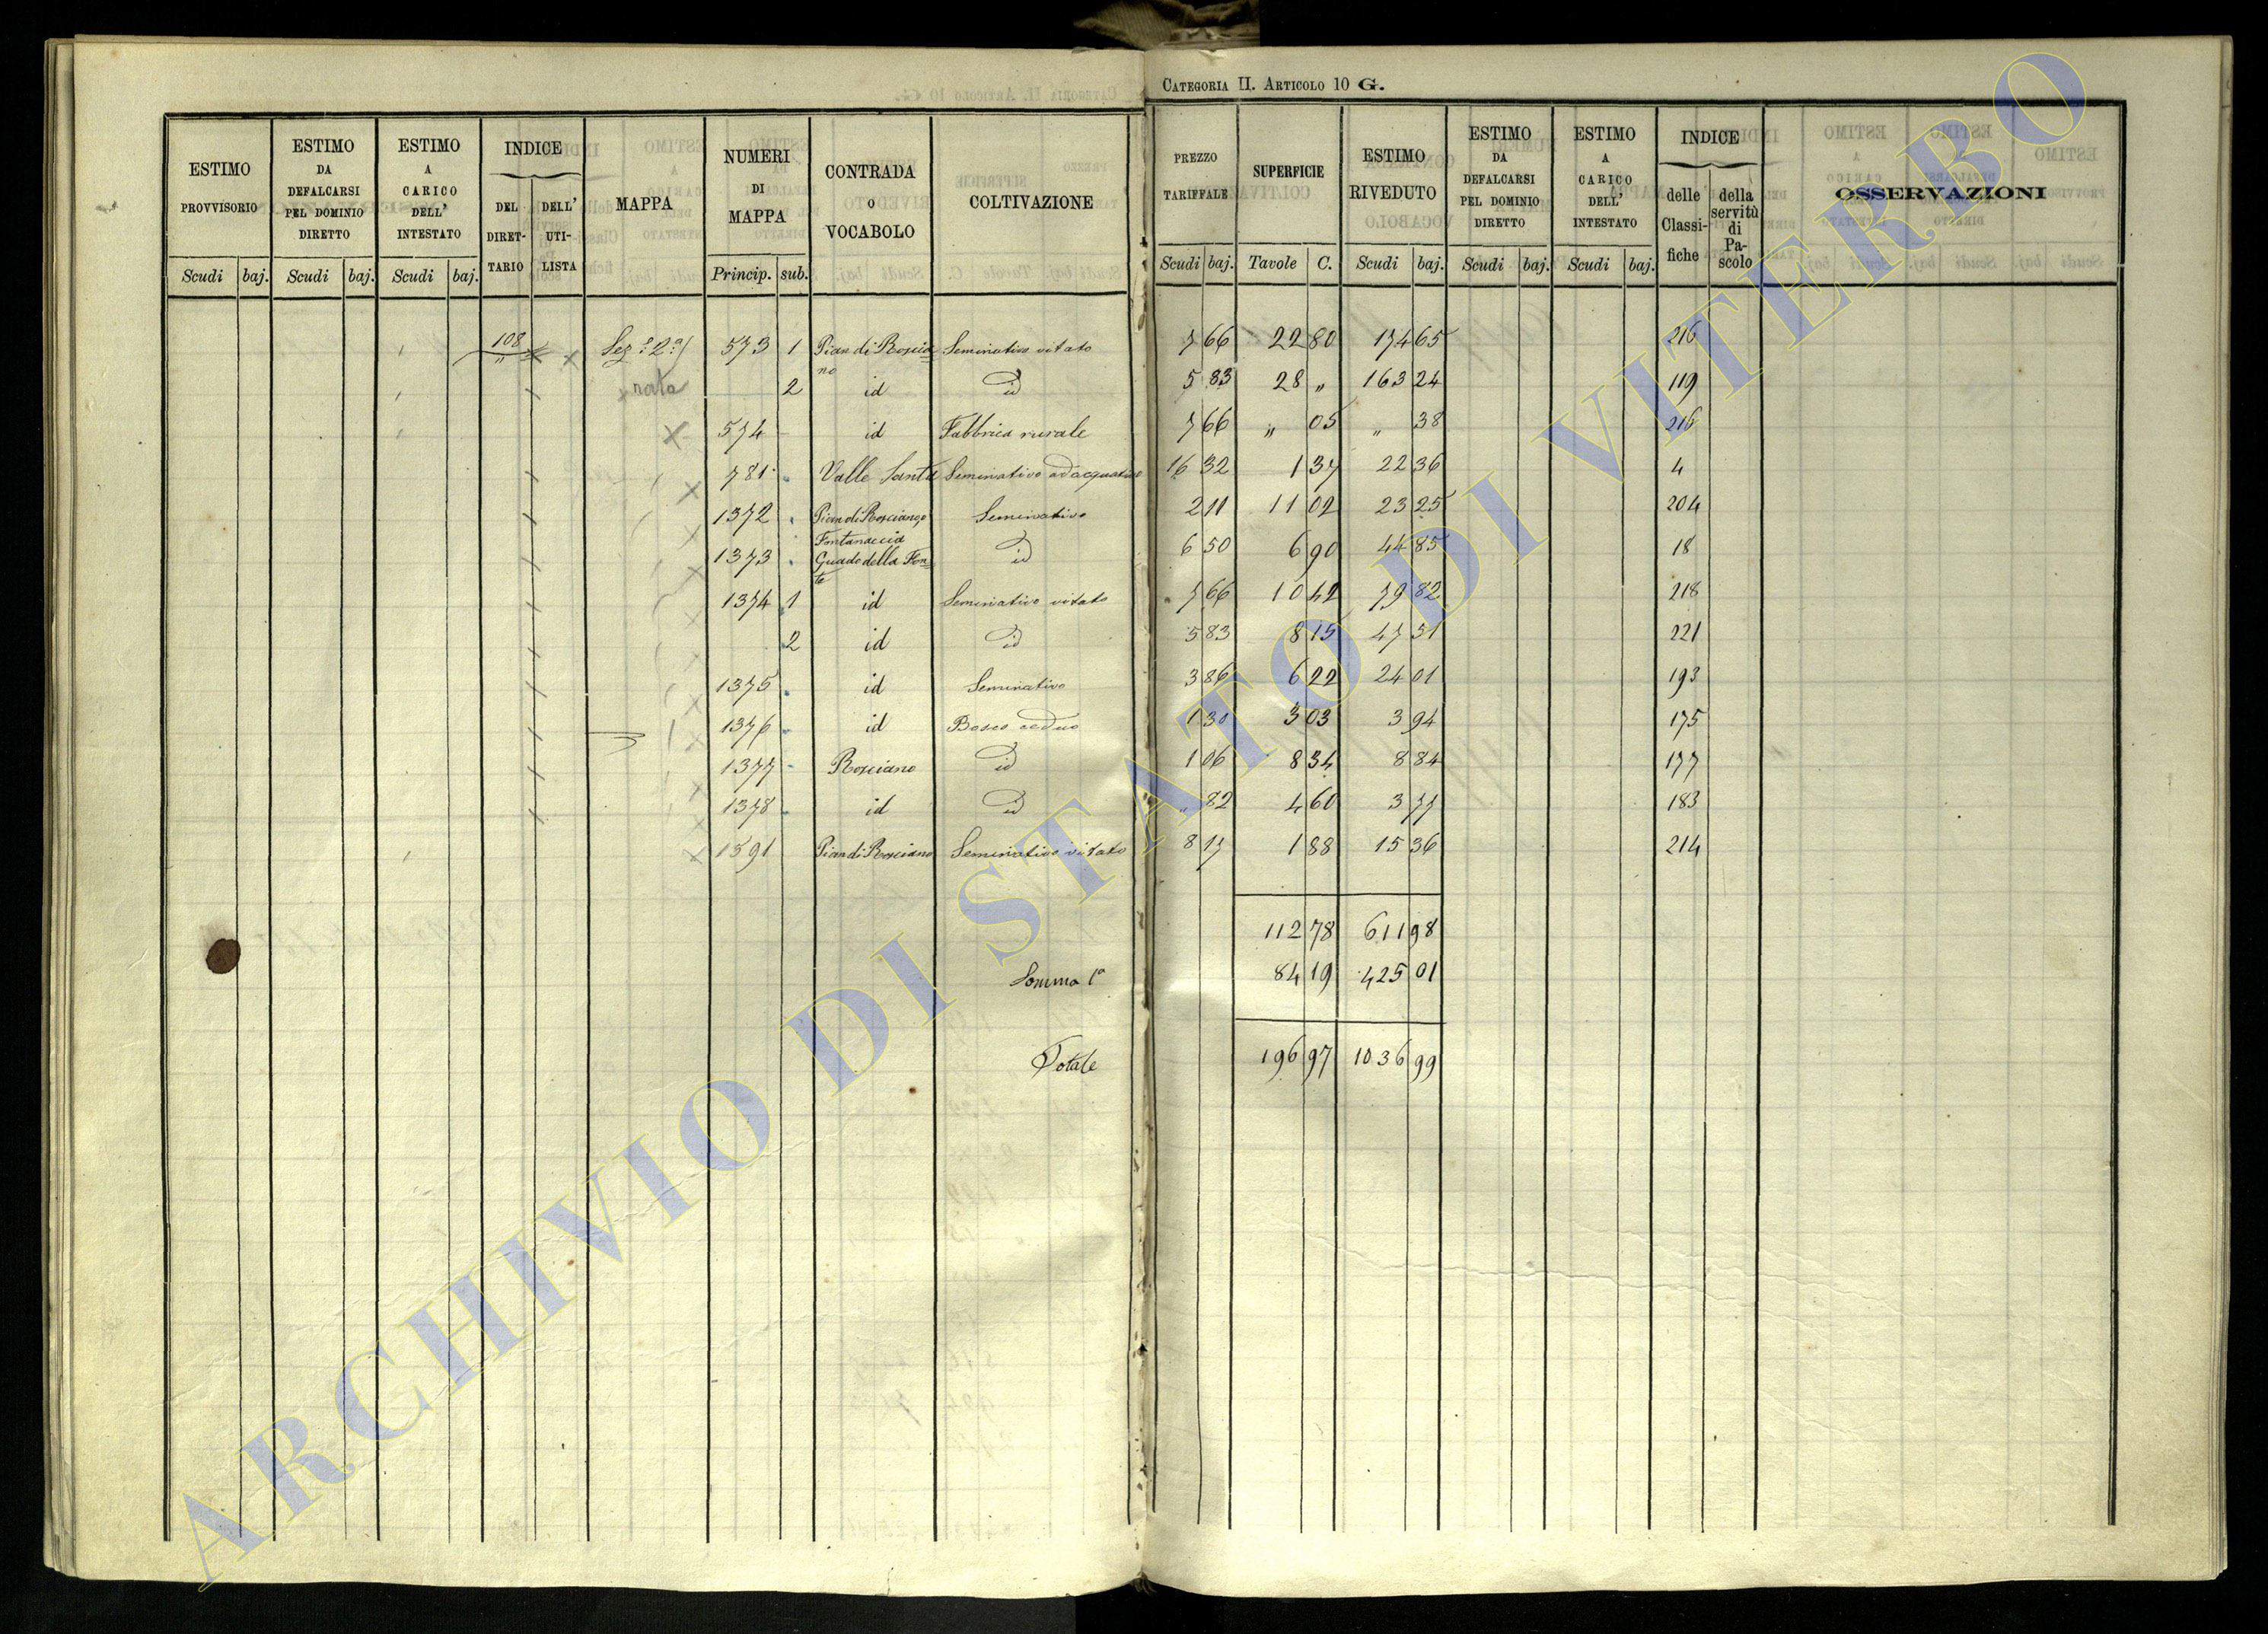 CATEGORIA II. ARTICOLO 10 G.
ESTIMO PROVVISORIO Scudi baj.
ESTIMO DA DEFALCARSI PEL DOMINIO DIRETTO Scudi baj.
ESTIMO A CARICO DELL' INTESTATO Scudi baj.
INDICE DEL DIRET-TARIO DELL' UTI-LISTA
MAPPA
NUMERI DI MAPPA Princip. sub.
CONTRADA O VOCABOLO
COLTIVAZIONE
PREZZO TARIFFALE Scudi baj.
SUPERFICIE Tavole C.
ESTIMO RIVEDUTO Scudi baj.
ESTIMO DA DEFALCARSI PEL DOMINIO DIRETTO Scudi baj.
ESTIMO A CARICO DELL' INTESTATO Scudi baj.
INDICE delle Classi-fiche della servitù di Pa-scolo
OSSERVAZIONI
108 Sez.e 2a 573 1 Pian di Roscia-no Seminativo vitato 7 66 22 80 174 65 216
nata 2 id id 5 83 28 „ 163 24 119
574 id Fabbrica rurale 7 66 „ 05 „ 38 216
781 Valle Santa Seminativo adacquativo 16 32 1 37 22 36 4
1372 Pian di Rosciano o Fontanaccia Seminativo 2 11 11 02 23 25 204
1373 Guado della Fon-te id 6 50 6 90 44 85 18
1374 1 id Seminativo vitato 7 66 10 42 79 82 218
2 id id 5 83 8 15 47 51 221
1375 id Seminativo 3 86 6 22 24 01 193
1376 id Bosco ceduo 1 30 3 03 3 94 175
1377 Rosciano id 1 06 8 34 8 84 177
1378 id id „ 82 4 60 3 77 183
1591 Pian di Rosciano Seminativo vitato 8 17 1 88 15 36 214
112 78 611 98
Somma 1a 84 19 425 01
Totale 196 97 1036 99
ARCHIVIO DI STATO DI VITERBO